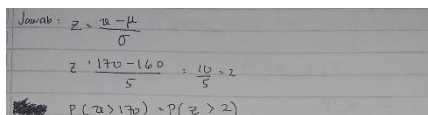 Jawab : z = x - μ / σ
z = 170 - 160 / 5 = 10 / 5 = 2
P(x > 170) = P(z > 2)